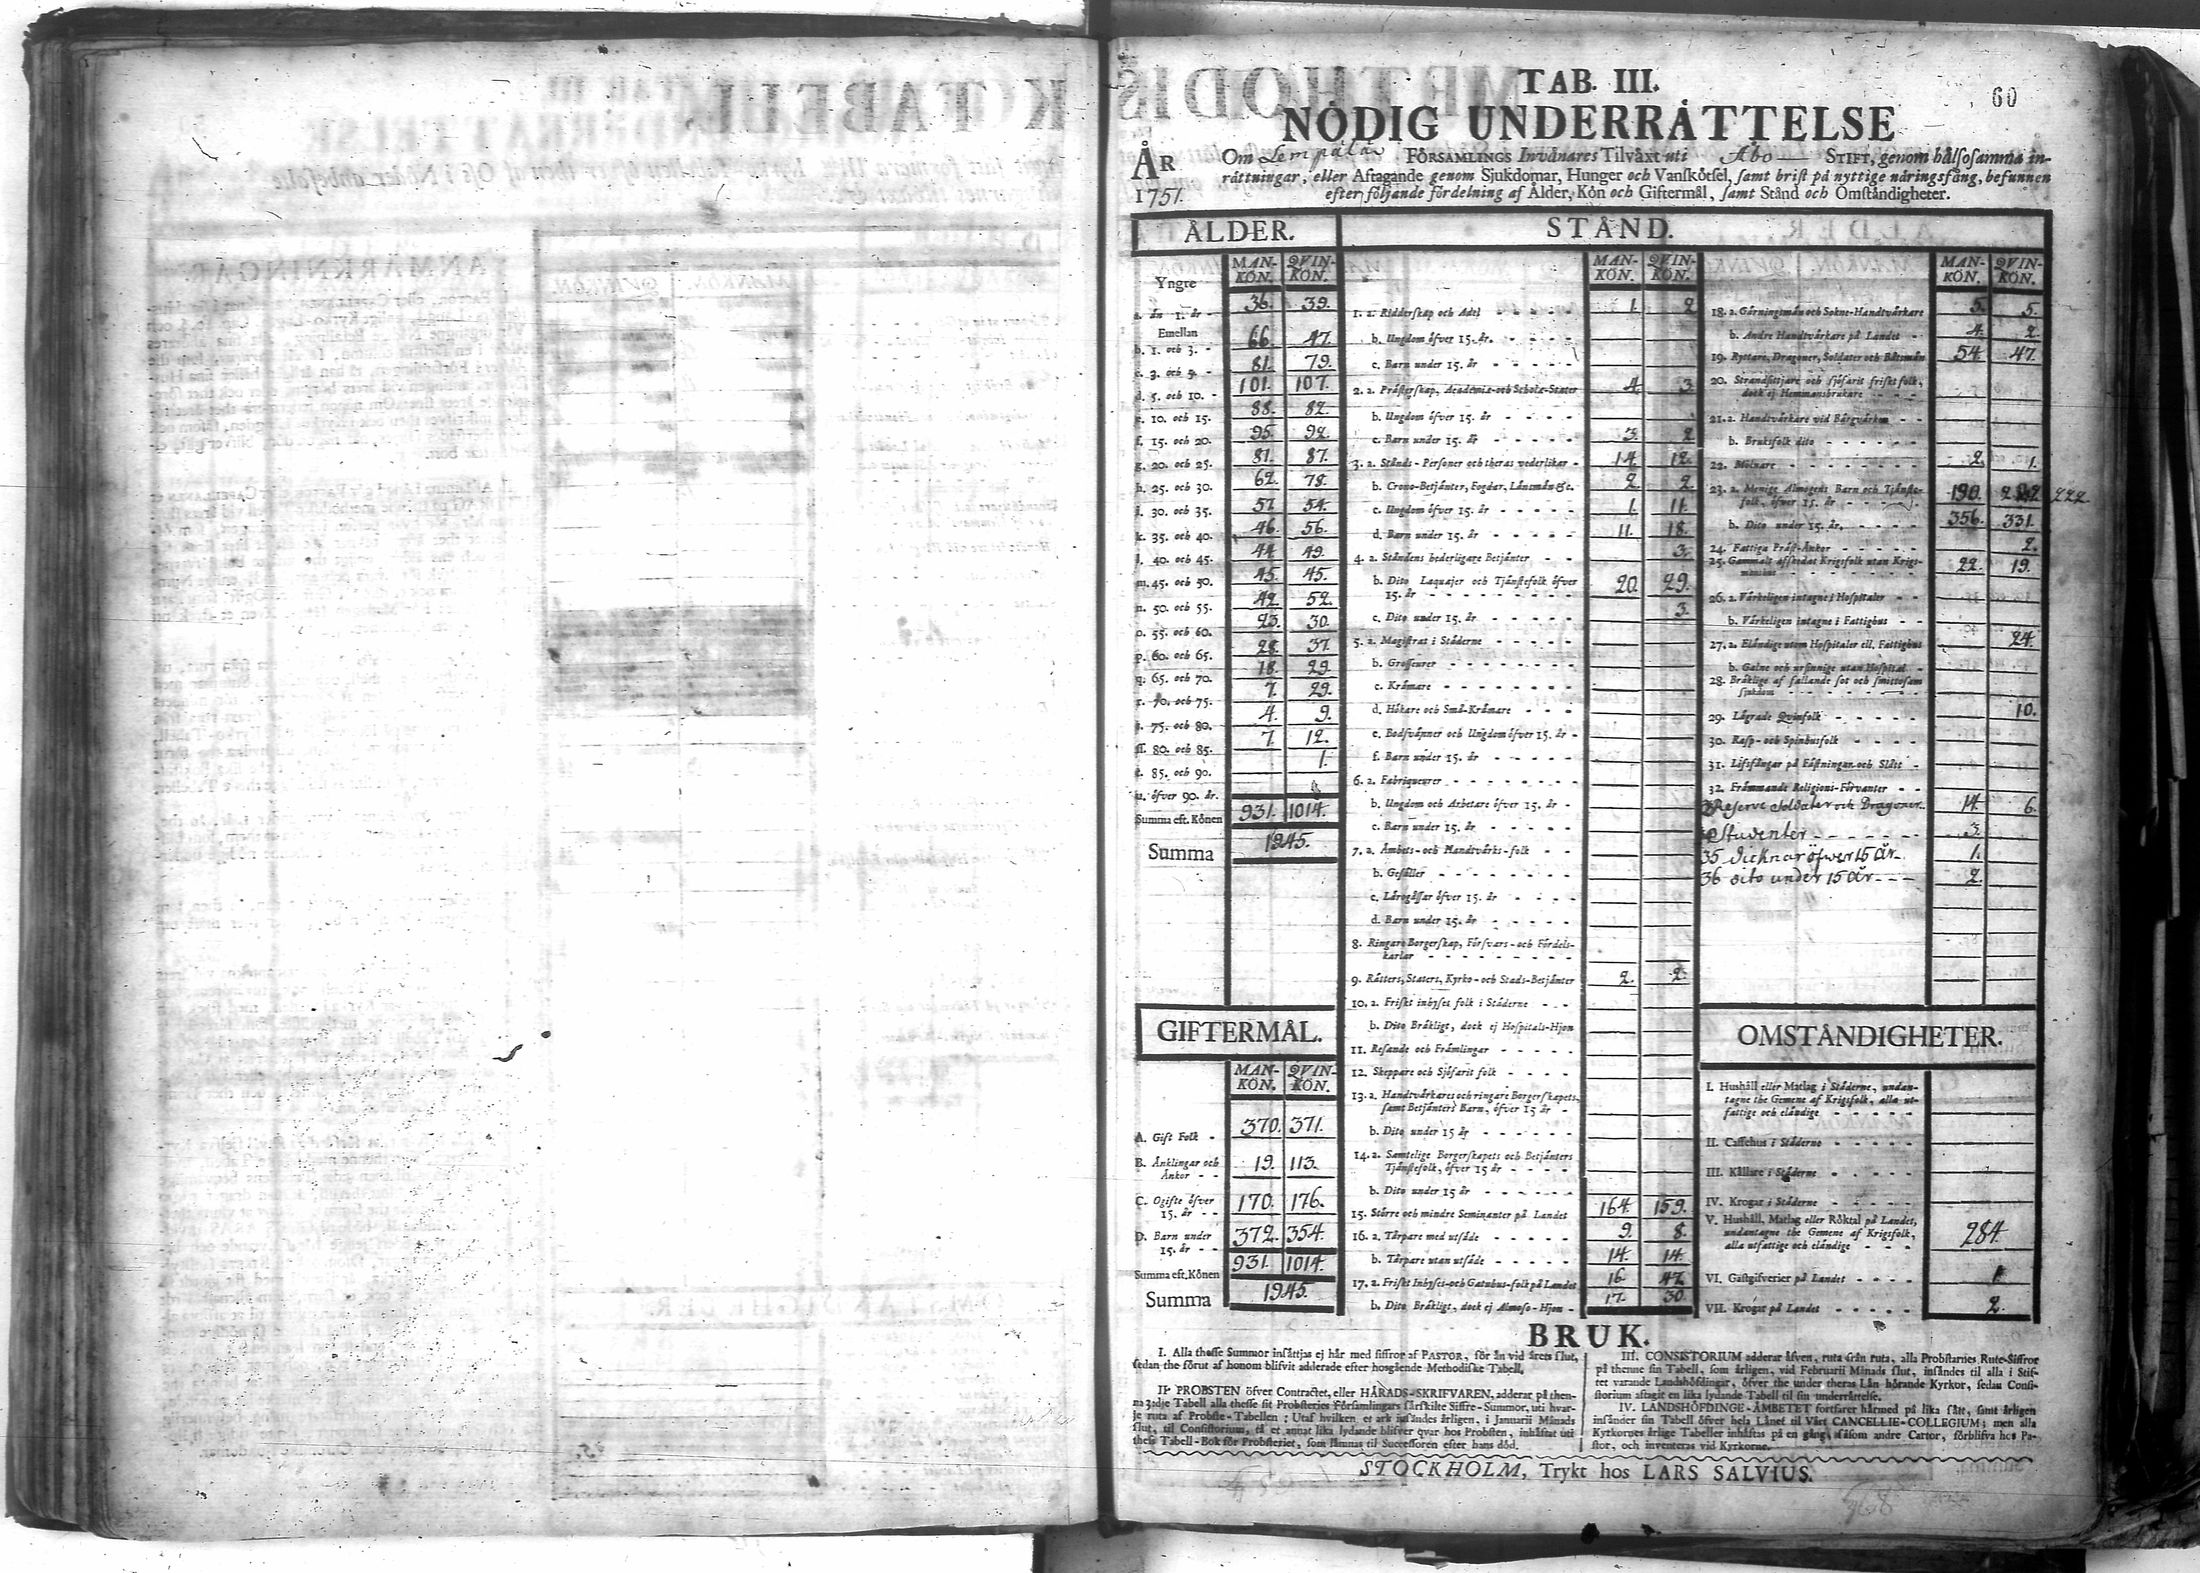 60
TAB. III.
NÖDIG UNDERRÄTTELSE
ÅR 1751.
Om Lempälä FÖRSAMLINGS Invånares Tilväxt uti Åbo STIFT, genom hälsosamma in-
rättningar, eller Aftagande genom Sjukdomar, Hunger och Vanskötsel, samt brist på nyttige näringsfång, befunnen
efter följande fördelning af Ålder, Kön och Giftermål, samt Stånd och Omständigheter.
ÅLDER.
MAN-KÖN. QVIN-KÖN.
Yngre
a. än 1. år - 36. 39.
Emellan
b. 1. och 3. - 66. 47.
c. 3. och 5. - 81. 79.
d. 5. och 10. - 101. 107.
e. 10. och 15. 88. 82.
f. 15. och 20. 95. 92.
g. 20. och 25. 81. 87.
h. 25. och 30. 62. 78.
i. 30. och 35. 57. 54.
k. 35. och 40. 46. 56.
l. 40. och 45. 44. 49.
m. 45. och 50. 45. 45.
n. 50. och 55. 42. 52.
o. 55. och 60. 23. 30.
p. 60. och 65. 28. 37.
q. 65. och 70. 18. 29.
r. 70. och 75. 7. 29.
s. 75. och 80. 4. 9.
ss. 80. och 85. 7. 12.
t. 85. och 90. 1.
u. öfver 90. år.
Summa eft. Könen 931. 1014.
Summa 1945.
GIFTERMÅL.
MAN-KÖN. QVIN-KÖN.
A. Gift Folk - 370. 371.
B. Änklingar och
Änkor - - 19. 113.
C. Ogifte öfver
15. år - - 170. 176.
D. Barn under
15. år - - 372. 354.
Summa eft. Könen 931. 1014.
Summa 1945.
STÅND.
MAN-KÖN. QVIN-KÖN.
1. a. Ridderskap och Adel - - - - 1. 2.
b. Ungdom öfver 15. år. - - - -
c. Barn under 15. år - - - - -
2. a. Prästerskap, Academiæ-och Scholæ-Stater 4. 3.
b. Ungdom öfver 15. år - - - - -
c. Barn under 15. år - - - - - 3. 2.
3. a. Stånds-Personer och theras vederlikar - 14. 12.
b. Crono-Betjänter, Fogdar, Länsmän &c. 2. 2.
c. Ungdom öfver 15. år - - - - - 1. 11.
d. Barn under 15. år - - - - - 11. 18.
4. a. Ståndens hederligare Betjänter - - 3.
b. Dito Laquajer och Tjänstefolk öfver
15. år - - - - - - - - 20. 29.
c. Dito under 15. år - - - - - 3.
5. a. Magistrat i Städerne - - - - -
b. Grosseurer - - - - - - - -
c. Krämare - - - - - - - -
d. Hökare och Små-Krämare - - -
e. Bodsvänner och Ungdom öfver 15. år -
f. Barn under 15. år - - - - -
6. a. Fabriqueurer - - - - - - -
b. Ungdom och Arbetare öfver 15. år -
c. Barn under 15. år - - - - -
7. a. Ämbets-och Handtvärks-folk - -
b. Gesäller - - - - - - - -
c. Lärogåssar öfver 15. år - - - -
d. Barn under 15. år - - - - -
8. Ringare Borgerskap, Försvars-och Fördels-
karlar - - - - - - - - -
9. Rätters, Staters, Kyrko-och Stads-Betjänter 2. 2.
10. a. Friskt inhyses folk i Städerne - - -
b. Dito Bräkligt, dock ej Hospitals-Hjon
11. Resande och Främlingar - - - - -
12. Skeppare och Sjöfarit folk - - - -
13. a. Handtvärkares och ringare Borgerskapets,
samt Betjänters Barn, öfver 15 år -
b. Dito under 15 år - - - - - -
14. a. Samtelige Borgerskapets och Betjänters
Tjänstefolk, öfver 15 år - - - -
b. Dito under 15 år - - - - - -
15. Större och mindre Heminanter på Landet 164. 159.
16. a. Tårpare med utsäde - - - - - 9. 8.
b. Tårpare utan utsäde - - - - 14. 14.
17. a. Friskt Inhyses-och Gatuhus-folk på Landet 16. 47.
b. Dito Bräkligt, dock ej Almoso-Hjon - 17. 30.
MAN-KÖN. QVIN-KÖN.
18. a. Gärningsmän och Sokne-Handtvärkare 5. 5.
b. Andre Handtvärkare på Landet - 4. 2.
19. Ryttare, Dragoner, Soldater och Båtsmän 54. 47.
20. Strandsittjare och sjöfarit friskt folk,
dock ej Hemmansbrukare - - -
21. a. Handtvärkare vid Bärgvärken - -
b. Bruksfolk dito - - - - - -
22. Mölnare - - - - - - - 2. 1.
23. a. Menige Almogens Barn och Tjänste-
folk, öfver 15. år - - - - - 190. 222
b. Dito under 15. år. - - - - 356. 331.
24. Fattiga Präst-Änkor - - - - - 2.
25. Gammalt afskedat Krigsfolk utan Krigs-
manshus - - - - - - - 22. 19.
26. a. Värkeligen intagne i Hospitaler - -
b. Värkeligen intagne i Fattighus - -
27. a. Eländige utom Hospitaler ell. Fattighus 24.
b. Galne och ursinnige utan Hospital -
28. Bräklige af fallande sot och smittosam
sjukdom - - - - - - -
29. Lägrade Qvinfolk - - - - - 10.
30. Rasp-och Spinhusfolk - - - -
31. Lifsfångar på Fästningar och Slått -
32. Främmande Religions-Förvanter - -
Reserve Soldater och Dragoner 14. 6.
Studenter - - - - - 3.
35 Dieknar öfwer 15 år - 1.
36 dito under 15 år - - - 2.
OMSTÄNDIGHETER.
I. Hushåll eller Matlag i Städerne, undan-
tagne the Gemene af Krigsfolk, alla ut-
fattige och eländige - - - -
II. Caffehus i Städerne - - - -
III. Källare i Städerne - - - -
IV. Krogar i Städerne - - - - -
V. Hushåll, Matlag eller Röktal på Landet,
undantagne the Gemene af Krigsfolk,
alla utfattige och eländige - - - 284.
VI. Gästgifverier på Landet - - - - 1.
VII. Krogar på Landet - - - - - 2.
BRUK.
I. Alla thesse Summor insättjas ej här med siffror af PASTOR, för än vid årets slut,
sedan the förut af honom blifvit adderade efter hosgående Methodiske Tabell.
II. PROBSTEN öfver Contractet, eller HÄRADS-SKRIFVAREN, adderar på then-
na 3:dje Tabell alla thesse sit Probsteries Församlingars särskilte Siffre-Summor, uti hvar-
je ruta af Probste-Tabellen; Utaf hvilken et ark insändes årligen, i Januarii Månads
slut, til Consistorium, tå et annat lika lydande blifver qvar hos Probsten, inhäftat uti
thess Tabell-Bok för Probsteriet, som lämnas til Successoren efter hans död.
III. CONSISTORIUM adderar äfven, ruta från ruta, alla Probstarnes Rute-Siffror
på thenne sin Tabell, som årligen, vid Februarii Månads slut, insändes til alla i Stif-
tet varande Landshöfdingar, öfver the under theras Län hörande Kyrkor, sedan Consi-
storium aftagit en lika lydande Tabell til sin underrättelse.
IV. LANDSHÖFDINGE-ÄMBETET fortfarer härmed på lika sätt, samt årligen
insänder sin Tabell öfver hela Länet til Vårt CANCELLIE-COLLEGIUM; men alla
Kyrkornes årlige Tabeller inhäftas på en gång, såsom andre Cartor, förblifva hos Pa-
stor, och inventeras vid Kyrkorne.
STOCKHOLM, Trykt hos LARS SALVIUS.